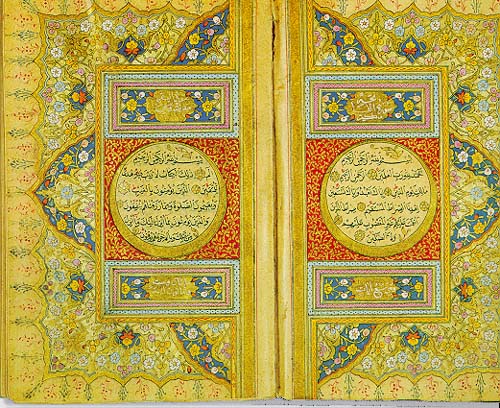 بسم الله الرحمن الرحيم
الحمد لله رب العالمين الرحمن الرحيم
ملك يوم الدين اياك نعبد واياك نستعين
اهدنا الصراط المستقيم صراط الذين
انعمت عليهم غير المغضوب عليهم
ولا الضالين
بسم الله الرحمن الرحيم
الم ذلك الكتاب لا ريب فيه هدى
للمتقين الذين يؤمنون بالغيب
ويقيمون الصلوة ومما رزقناهم ينفقون
والذين يؤمنون بما انزل اليك وما انزل
من قبلك وبالاخرة هم يوقنون